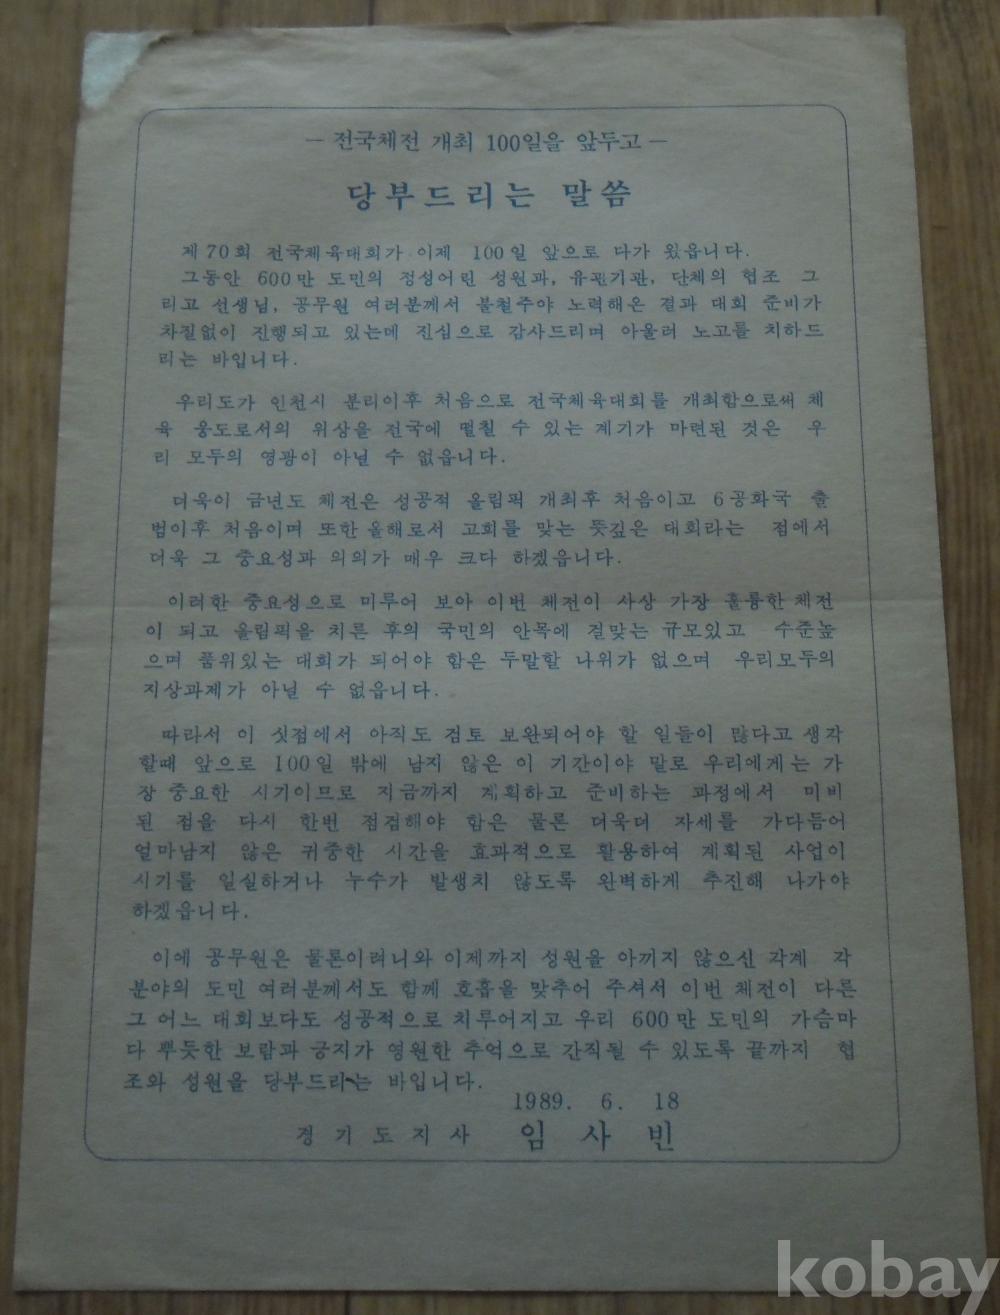 — 전국체전 개최 100일을 앞두고 —
당부드리는 말씀
제70회 전국체육대회가 이제 100일 앞으로 다가 왔읍니다.
그동안 600만 도민의 정성어린 성원과, 유관기관, 단체의 협조 그
리고 선생님, 공무원 여러분께서 불철주야 노력해온 결과 대회 준비가
차질없이 진행되고 있는데 진심으로 감사드리며 아울러 노고를 치하드
리는 바입니다.
우리도가 인천시 분리이후 처음으로 전국체육대회를 개최함으로써 체
육 웅도로서의 위상을 전국에 떨칠 수 있는 계기가 마련된 것은 우
리 모두의 영광이 아닐 수 없읍니다.
더욱이 금년도 체전은 성공적 올림픽 개최후 처음이고 6공화국 출
범이후 처음이며 또한 올해로서 고희를 맞는 뜻깊은 대회라는 점에서
더욱 그 중요성과 의의가 매우 크다 하겠읍니다.
이러한 중요성으로 미루어 보아 이번 체전이 사상 가장 훌륭한 체전
이 되고 올림픽을 치른 후의 국민의 안목에 걸맞는 규모있고 수준높
으며 품위있는 대회가 되어야 함은 두말할 나위가 없으며 우리모두의
지상과제가 아닐 수 없읍니다.
따라서 이 싯점에서 아직도 검토 보완되어야 할 일들이 많다고 생각
할때 앞으로 100일 밖에 남지 않은 이 기간이야 말로 우리에게는 가
장 중요한 시기이므로 지금까지 계획하고 준비하는 과정에서 미비
된 점을 다시 한번 점검해야 함은 물론 더욱더 자세를 가다듬어
얼마남지 않은 귀중한 시간을 효과적으로 활용하여 계획된 사업이
시기를 일실하거나 누수가 발생치 않도록 완벽하게 추진해 나가야
하겠읍니다.
이에 공무원은 물론이려니와 이제까지 성원을 아끼지 않으신 각계 각
분야의 도민 여러분께서도 함께 호흡을 맞추어 주셔서 이번 체전이 다른
그 어느 대회보다도 성공적으로 치루어지고 우리 600만 도민의 가슴마
다 뿌듯한 보람과 긍지가 영원한 추억으로 간직될 수 있도록 끝까지 협
조와 성원을 당부드리는 바입니다.
1989. 6. 18
경기도지사 임사빈
kobay